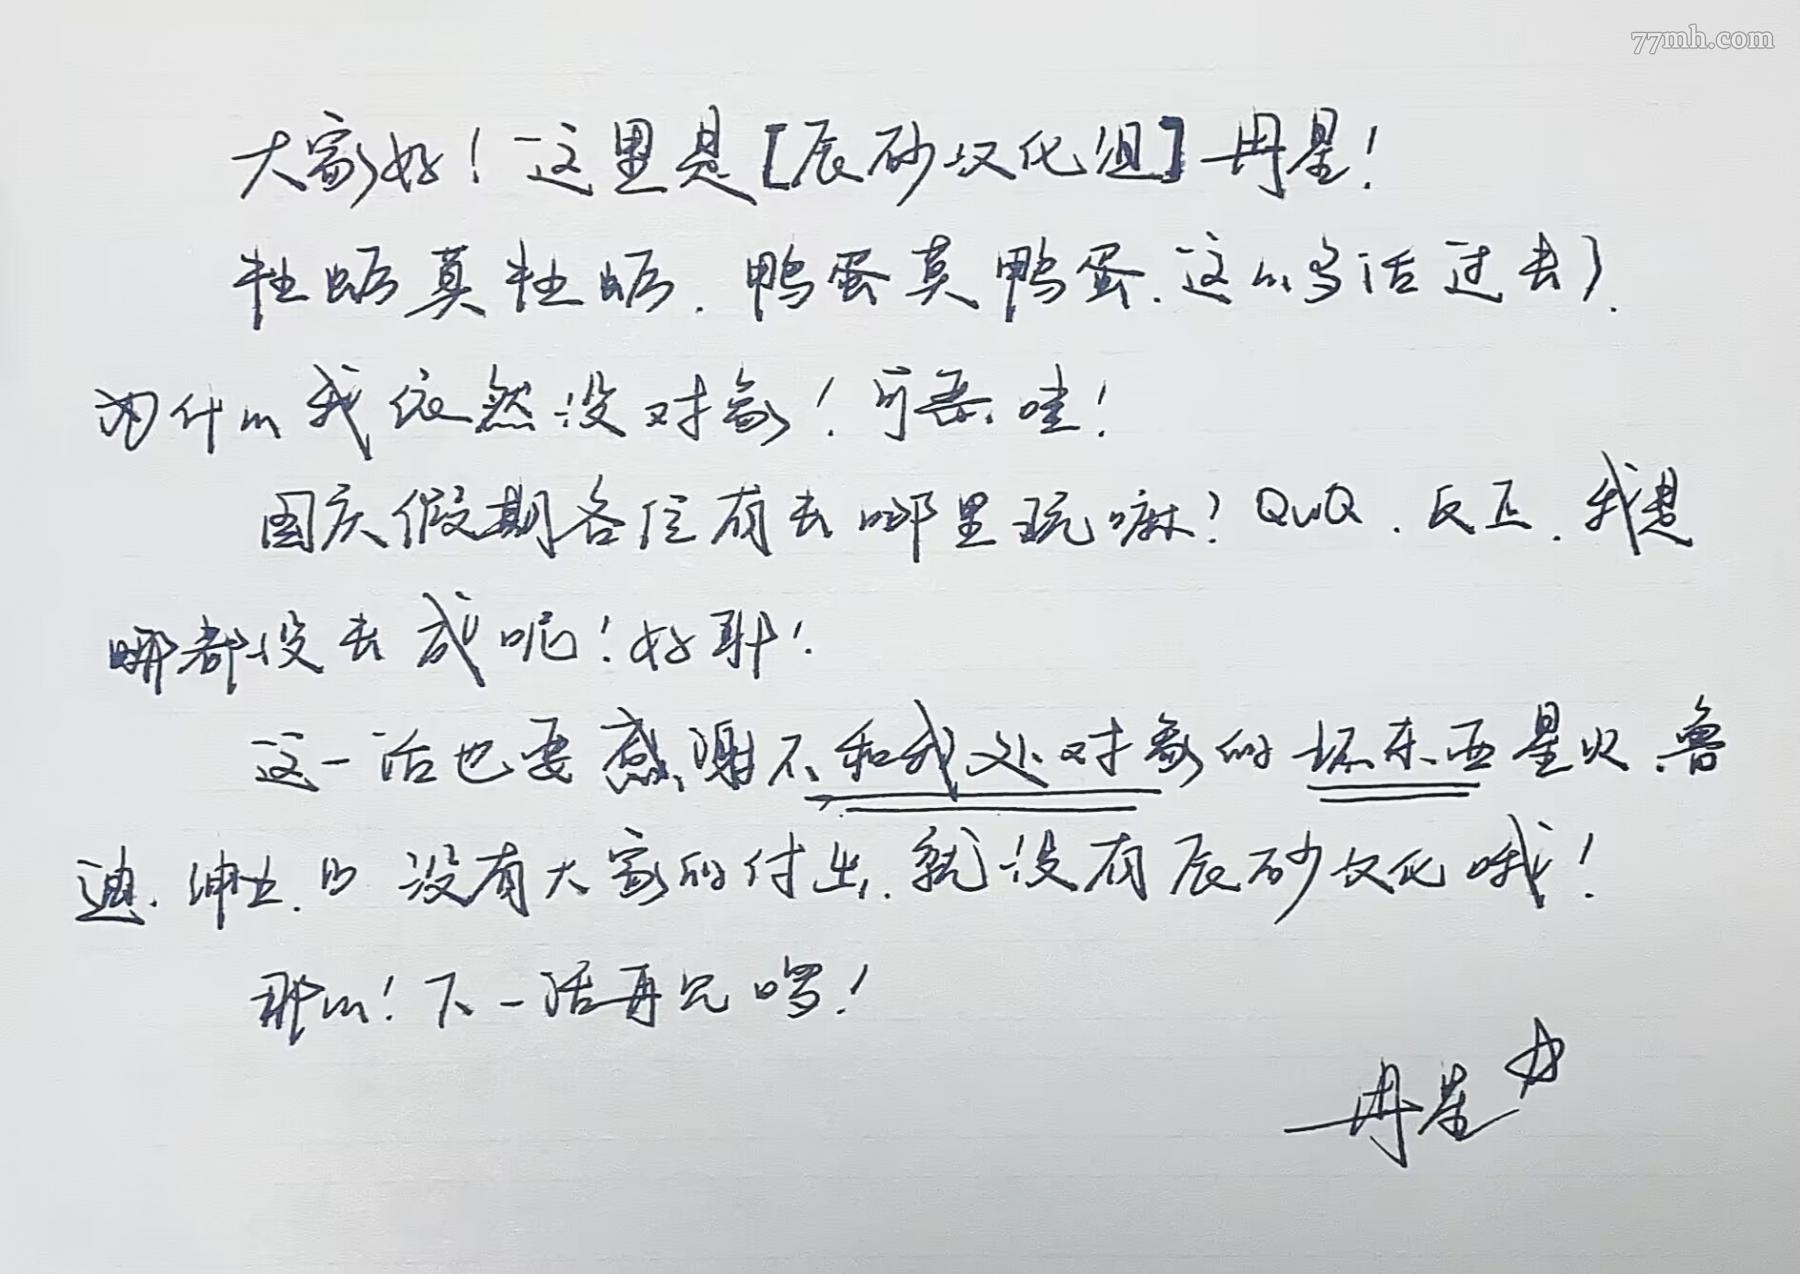 77mh.com
大家好！这里是[辰砂汉化组]冉星！
牡蛎莫牡蛎.鸭蛋莫鸭蛋.这么多话过去了.
为什么我依然没对象！可恶哇！
国庆假期各位有去哪里玩嘛？QwQ.反正.我是
哪都没去成呢！好耶！
这一话也要感谢不和我处对象的坏东西星火.鲁
迪.绅士.B 没有大家的付出.就没有辰砂汉化哦！
那么！下一话再见啰！
冉星